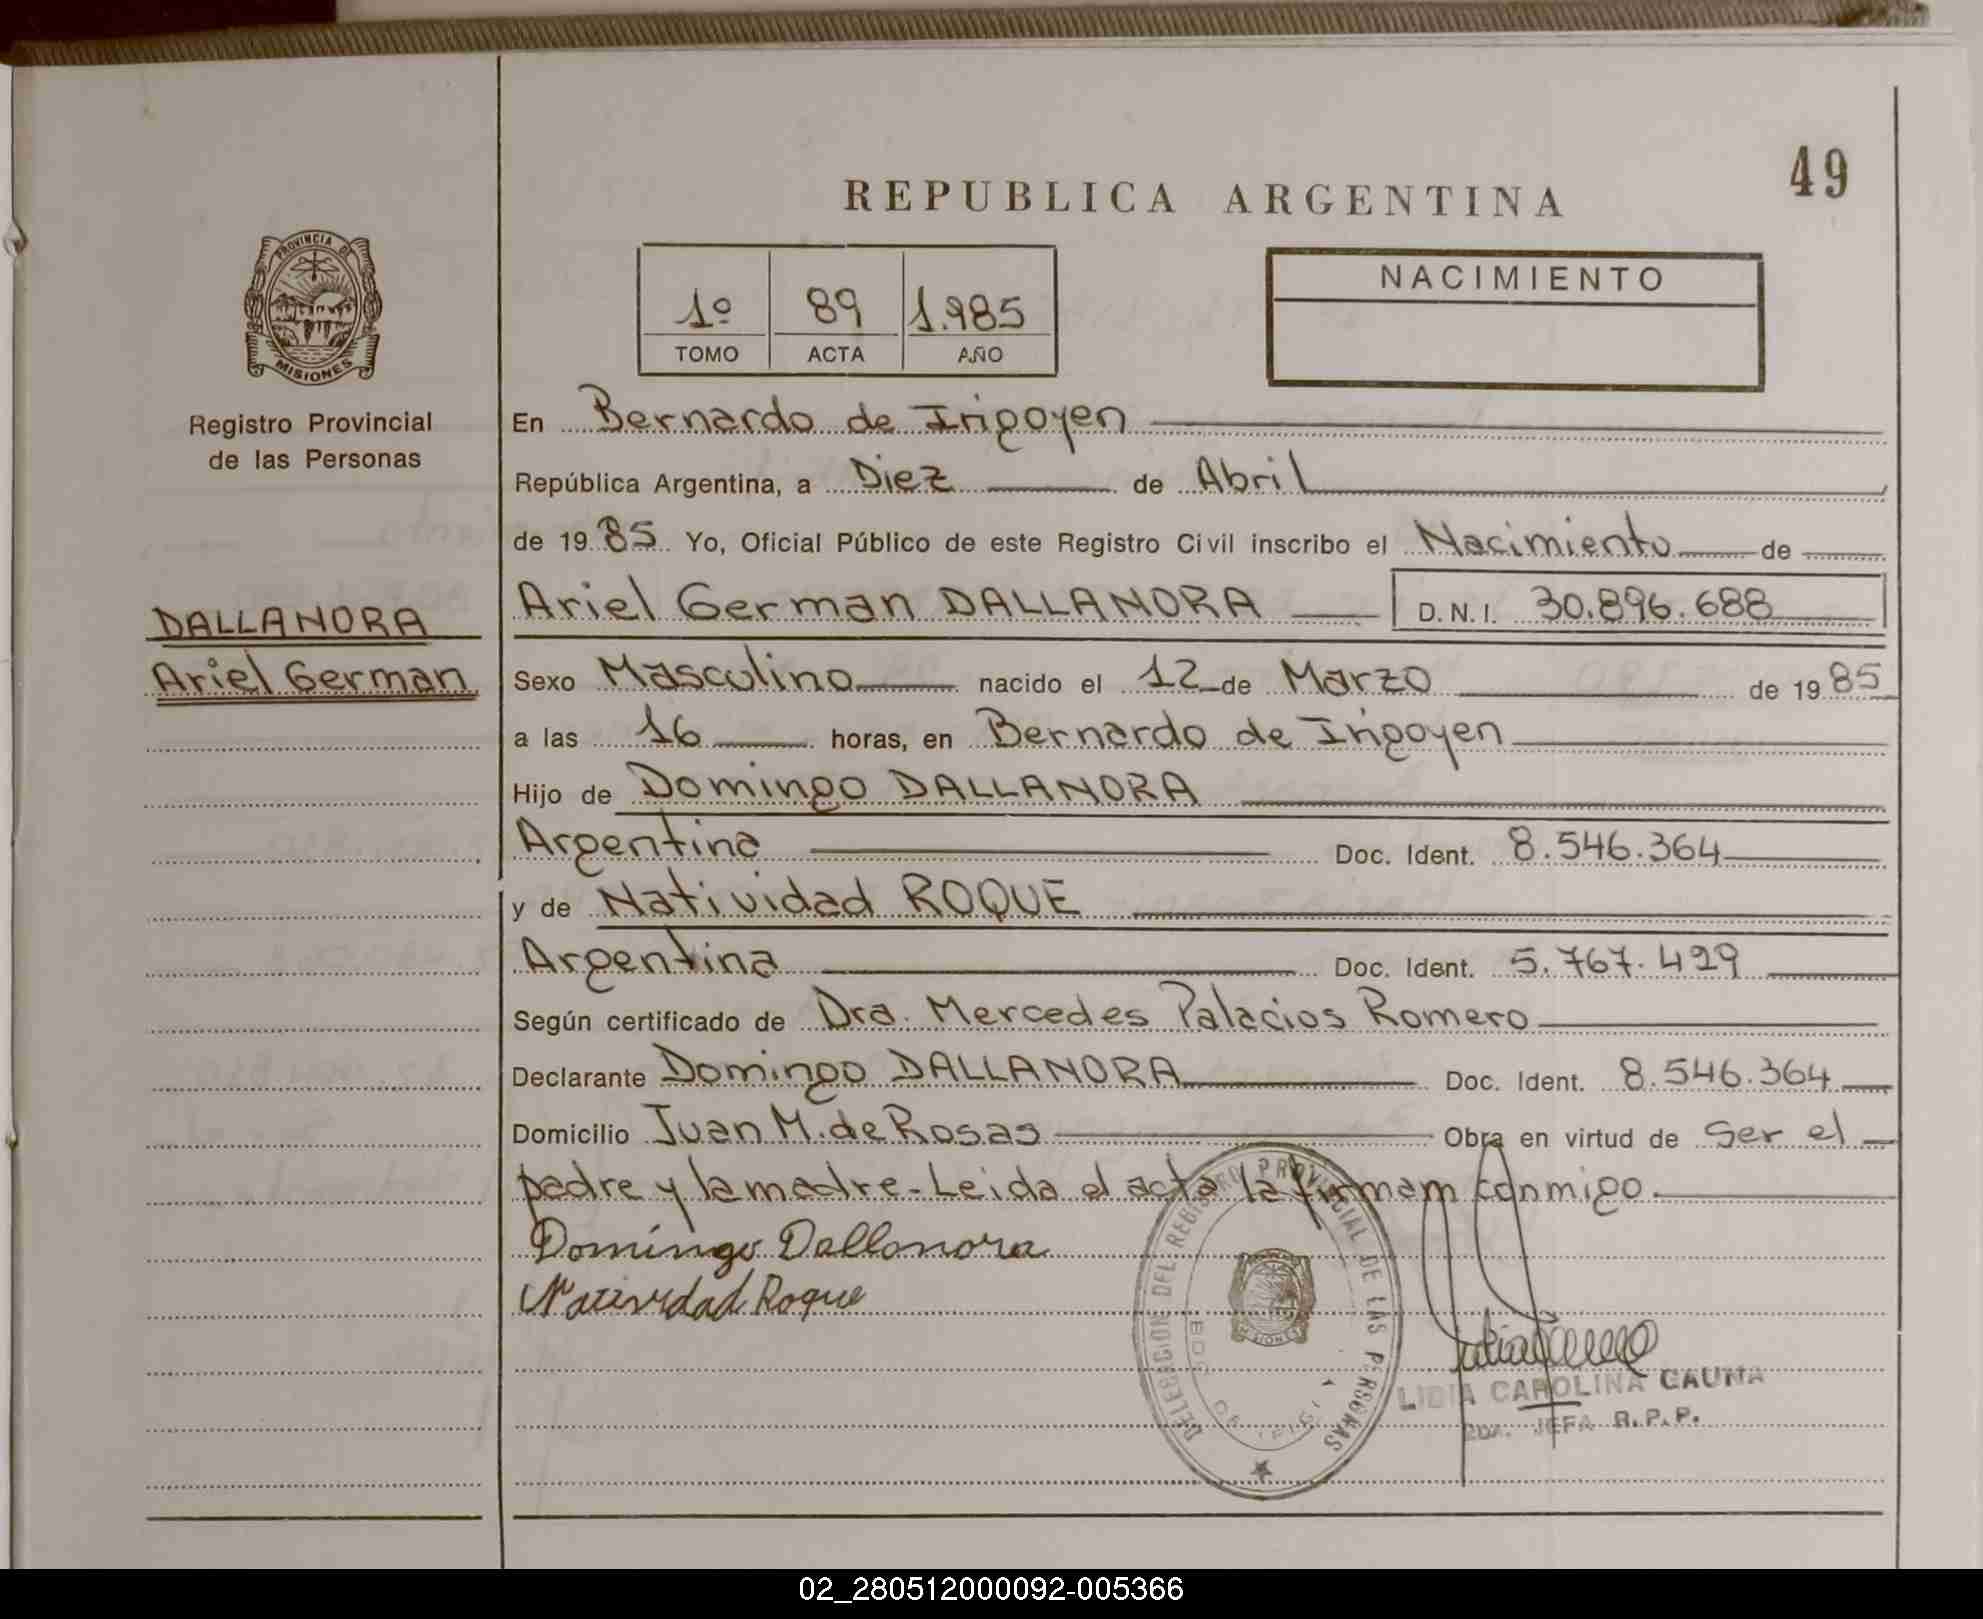 49
REPUBLICA ARGENTINA
PROVINCIA DE
MISIONES
Registro Provincial
de las Personas
DALLANORA
Ariel German
1º 89 1.985
TOMO ACTA AÑO
NACIMIENTO
En Bernardo de Irigoyen
República Argentina, a Diez de Abril
de 1985 Yo, Oficial Público de este Registro Civil inscribo el Nacimiento de
Ariel German DALLANORA D.N.I. 30.896.688
Sexo Masculino nacido el 12 de Marzo de 1985
a las 16 horas, en Bernardo de Irigoyen
Hijo de Domingo DALLANORA
Argentina Doc. Ident. 8.546.364
y de Natividad ROQUE
Argentina Doc. Ident. 5.767.429
Según certificado de Dra. Mercedes Palacios Romero
Declarante Domingo DALLANORA Doc. Ident. 8.546.364
Domicilio Juan M. de Rosas Obra en virtud de Ser el
padre y la madre - Leida el acta la firmam conmigo.
Domingo Dallanora
Natividad Roque
DELEGACION DEL REGISTRO PROVINCIAL DE LAS PERSONAS
MISIONES
LIDIA CAROLINA CAUNA
2DA. JEFA R.P.P.
02_280512000092-005366